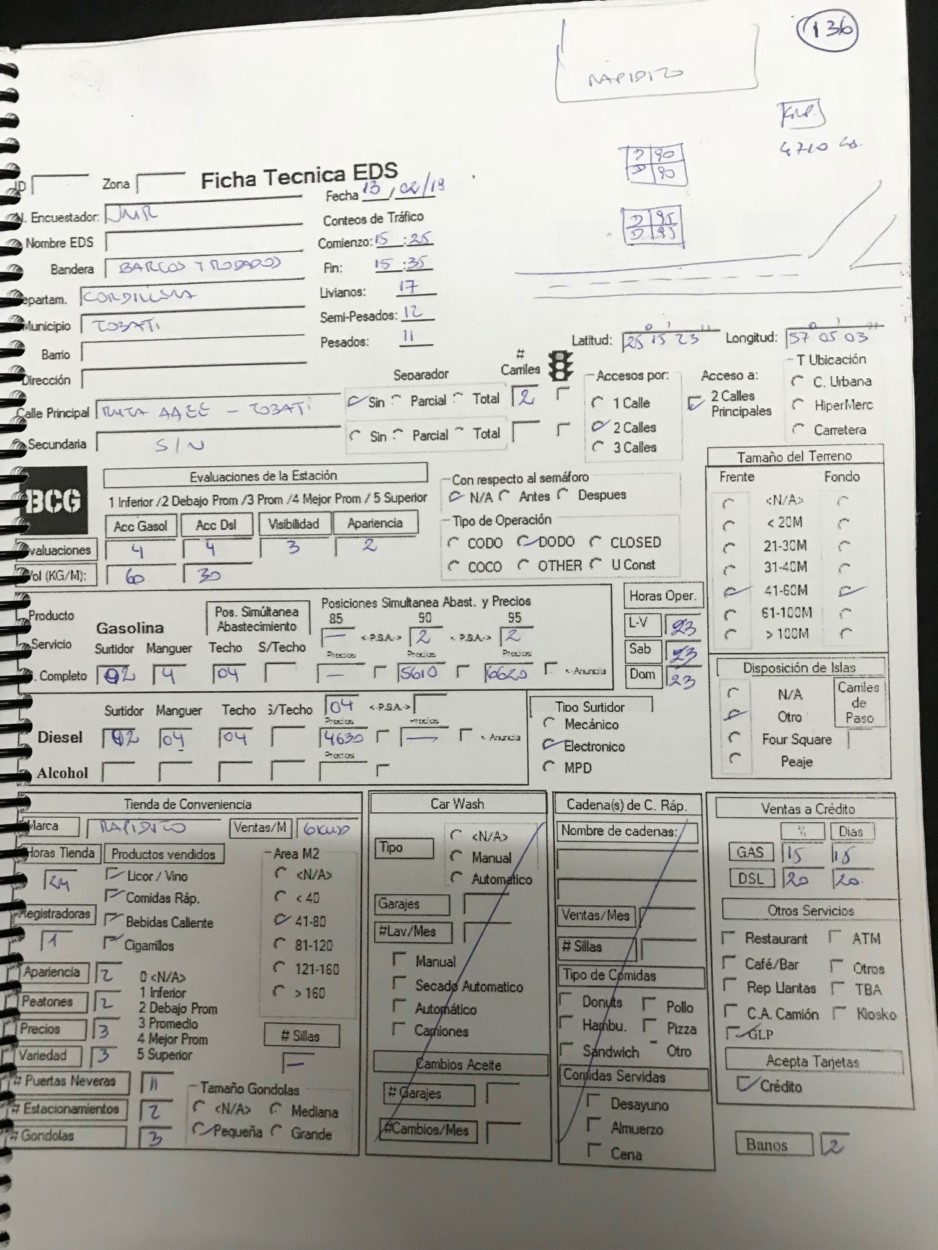 136
RAPIDITO
GLP
4710 Gs.
D 90
D 90
D 95
D 95
ID Zona Ficha Tecnica EDS
Fecha 13/02/19
N. Encuestador: JMR
Conteos de Tráfico
Nombre EDS
Comienzo: 15:25
Bandera BARCOS Y RODADOS
Fin: 15:35
Departam. CORDILLERA
Livianos: 17
Municipio TOBATI
Semi-Pesados: 12
Barrio
Pesados: 11
Latitud: 25 15 23 Longitud: 57 05 03
Dirección
Separador # Carriles
Calle Principal RUTA - TOBATI Sin Parcial Total 2
Secundaria S/N Sin Parcial Total
Accesos por:
1 Calle
2 Calles
3 Calles
Acceso a:
2 Calles Principales
T Ubicación
C. Urbana
HiperMerc
Carretera
BCG
Evaluaciones de la Estación
1 Inferior /2 Debajo Prom /3 Prom /4 Mejor Prom / 5 Superior
Acc Gasol Acc Dsl Visibilidad Apariencia
Evaluaciones 4 4 3 2
Vol (KG/M): 60 30
Con respecto al semáforo
N/A Antes Despues
Tipo de Operación
CODO DODO CLOSED
COCO OTHER U Const
Tamaño del Terreno
Frente Fondo
<N/A>
< 20M
21-30M
31-40M
41-60M
61-100M
> 100M
Producto
Servicio
Gasolina
Pos. Simúltanea Abastecimiento
Posiciones Simultanea Abast. y Precios
85 90 95
— <-P.S.A.-> 2 <-P.S.A.-> 2
Surtidor Manguer Techo S/Techo Precios Precios Precios
. Completo 02 4 04 — 5610 6620 <-Anuncia
Horas Oper.
L-V 23
Sab 23
Dom 23
Diesel
Surtidor Manguer Techo S/Techo 04 <-P.S.A.->
Precios Precios
02 04 04 4630 — <-Anuncia
Precios
Alcohol
Tipo Surtidor
Mecánico
Electronico
MPD
Disposición de Islas
N/A
Otro
Four Square
Peaje
Carriles de Paso
Tienda de Conveniencia
Marca RAPIDITO Ventas/M
Horas Tienda 24
Productos vendidos
Licor / Vino
Comidas Ráp.
Bebidas Caliente
Cigarrillos
Registradoras 1
Area M2
<N/A>
< 40
41-80
81-120
121-160
> 160
Apariencia 2
Peatones 2
Precios 3
Variedad 3
0 <N/A>
1 Inferior
2 Debajo Prom
3 Promedio
4 Mejor Prom
5 Superior
# Sillas —
# Puertas Neveras 11
# Estacionamientos 2
# Gondolas 3
Tamaño Gondolas
<N/A> Mediana
Pequeña Grande
Car Wash
Tipo
<N/A>
Manual
Automatico
Garajes
#Lav/Mes
Manual
Secado Automatico
Automático
Camiones
Cambios Aceite
# Garajes
#Cambios/Mes
Cadena(s) de C. Ráp.
Nombre de cadenas:
Ventas/Mes
# Sillas
Tipo de Comidas
Donuts Pollo
Hambu. Pizza
Sandwich Otro
Comidas Servidas
Desayuno
Almuerzo
Cena
Ventas a Crédito
% Dias
GAS 15 15
DSL 20 20
Otros Servicios
Restaurant ATM
Café/Bar Otros
Rep Llantas TBA
C.A. Camión Kiosko
GLP
Acepta Tarjetas
Crédito
Banos 2